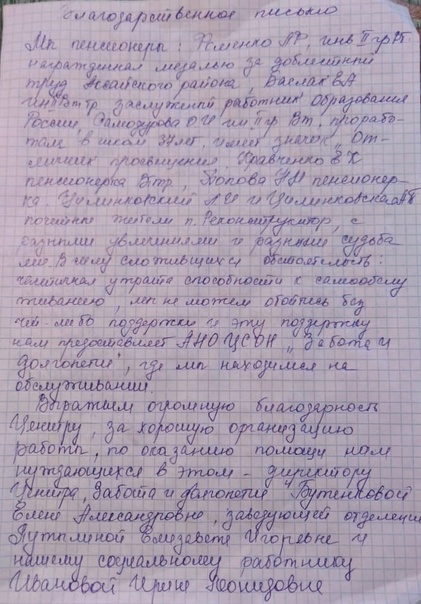 Благодарственное письмо
Мы пенсионеры: Фоменко АР, инв II гр ВТ
награжденная медалью за доблестный
труд Аксайского района, Баслак ВА
инв II гр заслуженный работник образования
России, Самодурова ОИ инв II гр Вт, прорабо-
тал в школе 37 лет, имеет значок „От-
личник просвещения, Кравченко В К
пенсионерка Втр, Попова НМ пенсионер-
ка. Цимлиновский АИ и Цимлиновская
почетные жители п. Реконструктор, с
разными увлечениями и разными судьба
ми. В силу сложившихся обстоятельств:
частичная утрата способности к самообслу
живанию, мы не можем обойтись без
чьей-либо поддержки и эту поддержку
нам предоставляет АНО ЦСОН „Забота и
долголетие", где мы находимся на
обслуживании.
Выражаем огромную благодарность
Центру, за хорошую организацию
работы, по оказанию помощи нам
нуждающихся в этом - директору
Центра, Забота и долголетие" Бутенковой
Елене Александровне, заведующей отделени
Путилиной Елизавете Игоревне и
нашему социальному работнику
Ивановой Ирине Леонидовне